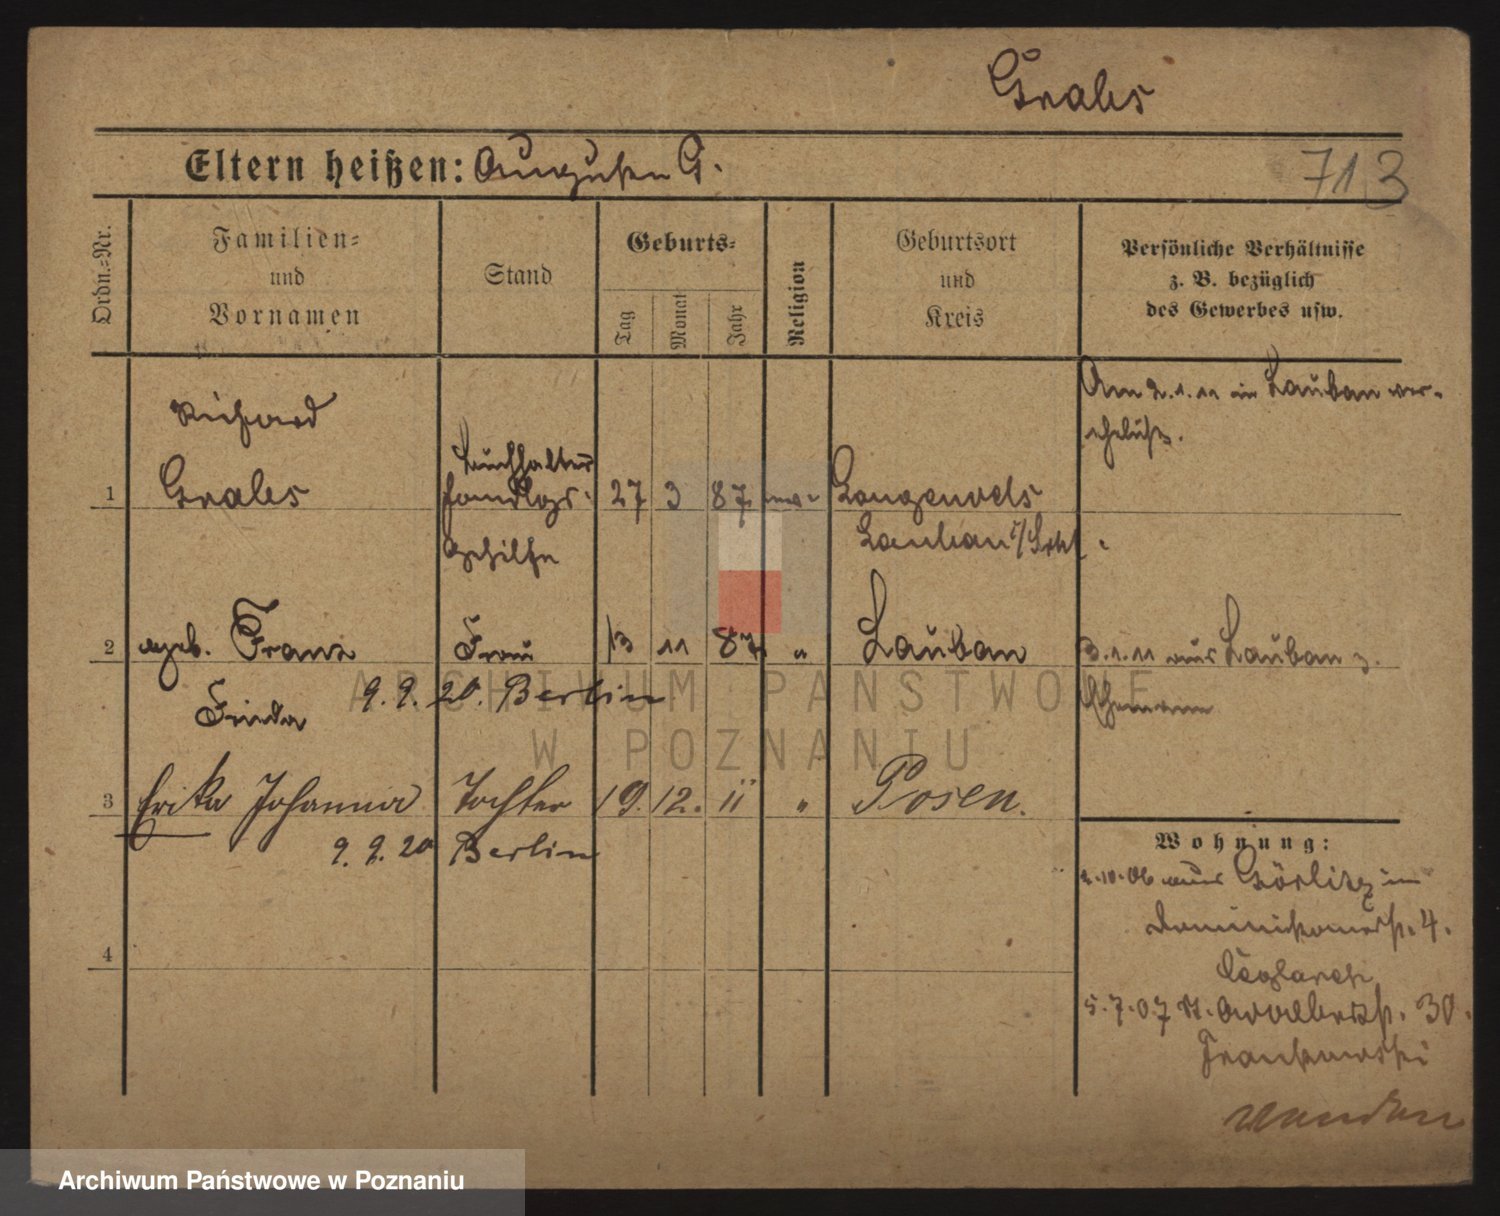 Grabs
Eltern heißen: August G.
713
Ordn.-Nr.
Familien-
und
Vornamen
Stand
Geburts-
Tag
Monat
Jahr
Religion
Geburtsort
und
Kreis
Persönliche Verhältnisse
z. B. bezüglich
des Gewerbes usw.
Am 2.1.11 in Lauban ver-
ehelicht.
Richard
Buchhalter
1 Grabs Handlgs. 27 3 87 Langenöls
Gehilfe Lauban
2 geb. Franz Frau 13 11 87 " Lauban 3.1.11 aus Lauban z.
Frida 9.9.20. Berlin Ehemann
3 Erika Johanna Tochter 19. 12. 11 " Posen.
9.9.20 Berlin
Wohnung:
2.10.06 aus Görlitz in
Dominikanerstr. 4.
4
5.7.07 St. Adalbertstr. 30.
Frankowski
wenden
ARCHIWUM PAŃSTWOWE
W POZNANIU
Archiwum Państwowe w Poznaniu